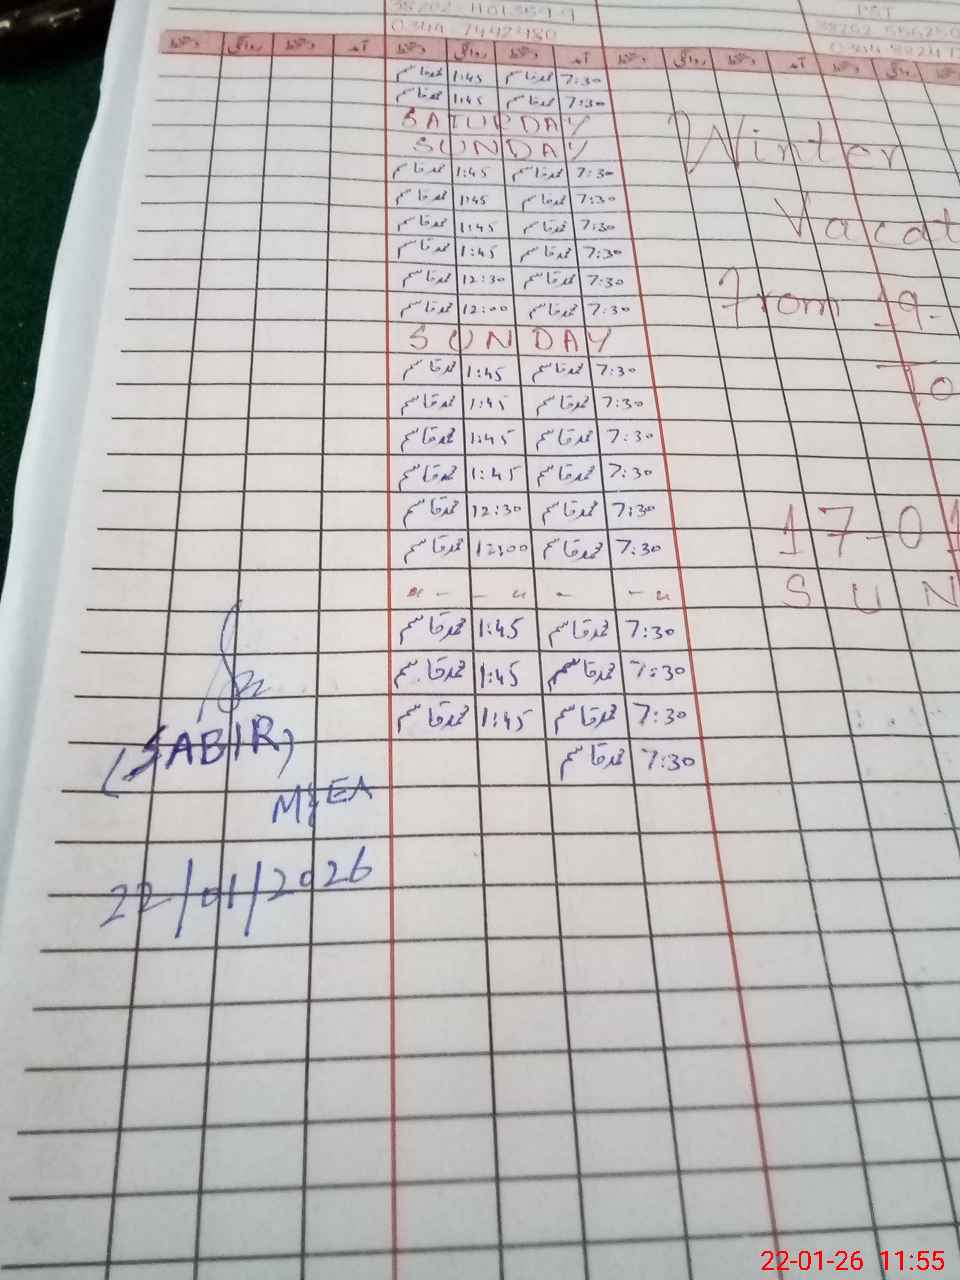 38202-1101359-9 PST
0344-7442480
دستخط روانگی دستخط آمد دستخط روانگی دستخط آمد دستخط روانگی دستخط آمد دستخط روانگی
7:30 محمد قاسم 1:45 محمد قاسم
7:30 محمد قاسم 1:45 محمد قاسم
SATURDAY
SUNDAY Winter
7:30 محمد قاسم 1:45 محمد قاسم
7:30 محمد قاسم 1:45 محمد قاسم
7:30 محمد قاسم 1:45 محمد قاسم Vacat
7:30 محمد قاسم 1:45 محمد قاسم
7:30 محمد قاسم 12:30 محمد قاسم
7:30 محمد قاسم 12:00 محمد قاسم From 19-
SUNDAY
7:30 محمد قاسم 1:45 محمد قاسم To
7:30 محمد قاسم 1:45 محمد قاسم
7:30 محمد قاسم 1:45 محمد قاسم
7:30 محمد قاسم 1:45 محمد قاسم
7:30 محمد قاسم 12:30 محمد قاسم
7:30 محمد قاسم 12:00 محمد قاسم 17-01
" - - " - - " SUN
7:30 محمد قاسم 1:45 محمد قاسم
7:30 محمد قاسم 1:45 محمد قاسم
7:30 محمد قاسم 1:45 محمد قاسم
7:30 محمد قاسم
(SABIR)
M&EA
22/01/2026
22-01-26 11:55